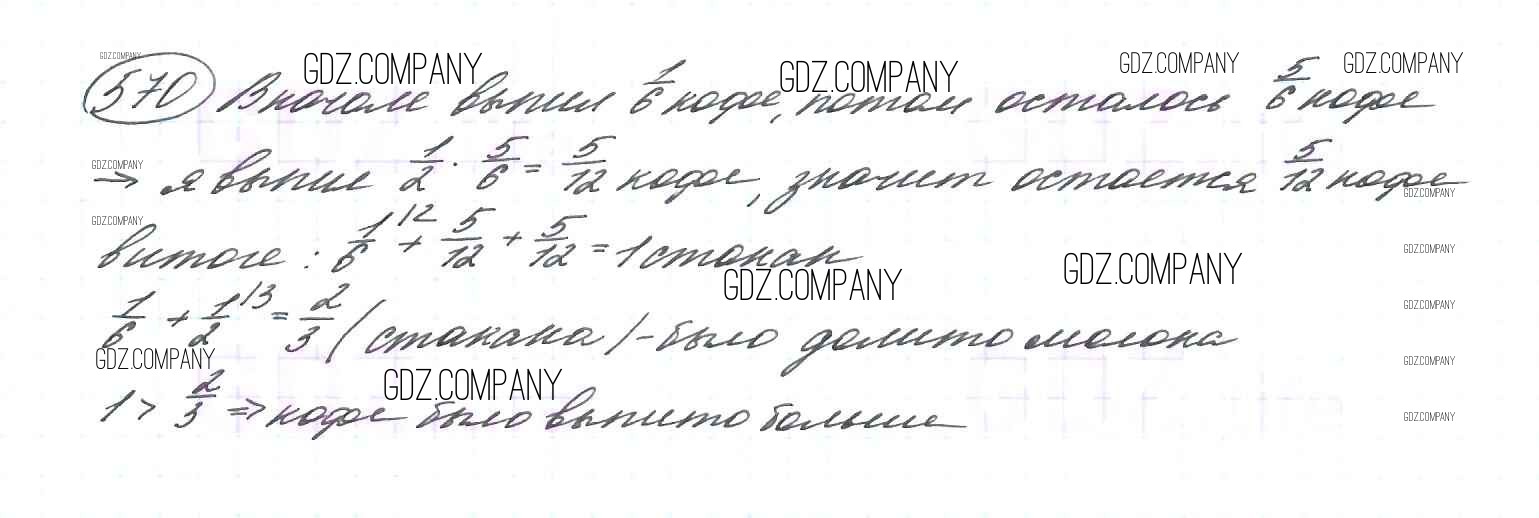 GDZ.COMPANY
570 Вначале выпил 1/6 кофе, потом осталось 5/6 кофе
GDZ.COMPANY GDZ.COMPANY GDZ.COMPANY GDZ.COMPANY
→ я выпил 1/2 · 5/6 = 5/12 кофе, значит остается 5/12 кофе
GDZ.COMPANY GDZ.COMPANY
в итоге: 1/6 \2 + 5/12 + 5/12 = 1 стакан
GDZ.COMPANY GDZ.COMPANY
GDZ.COMPANY GDZ.COMPANY
1/6 + 1/2 \3 = 2/3 (стакана) - было долито молока
GDZ.COMPANY GDZ.COMPANY
GDZ.COMPANY GDZ.COMPANY
1 > 2/3 => кофе было выпито больше
GDZ.COMPANY